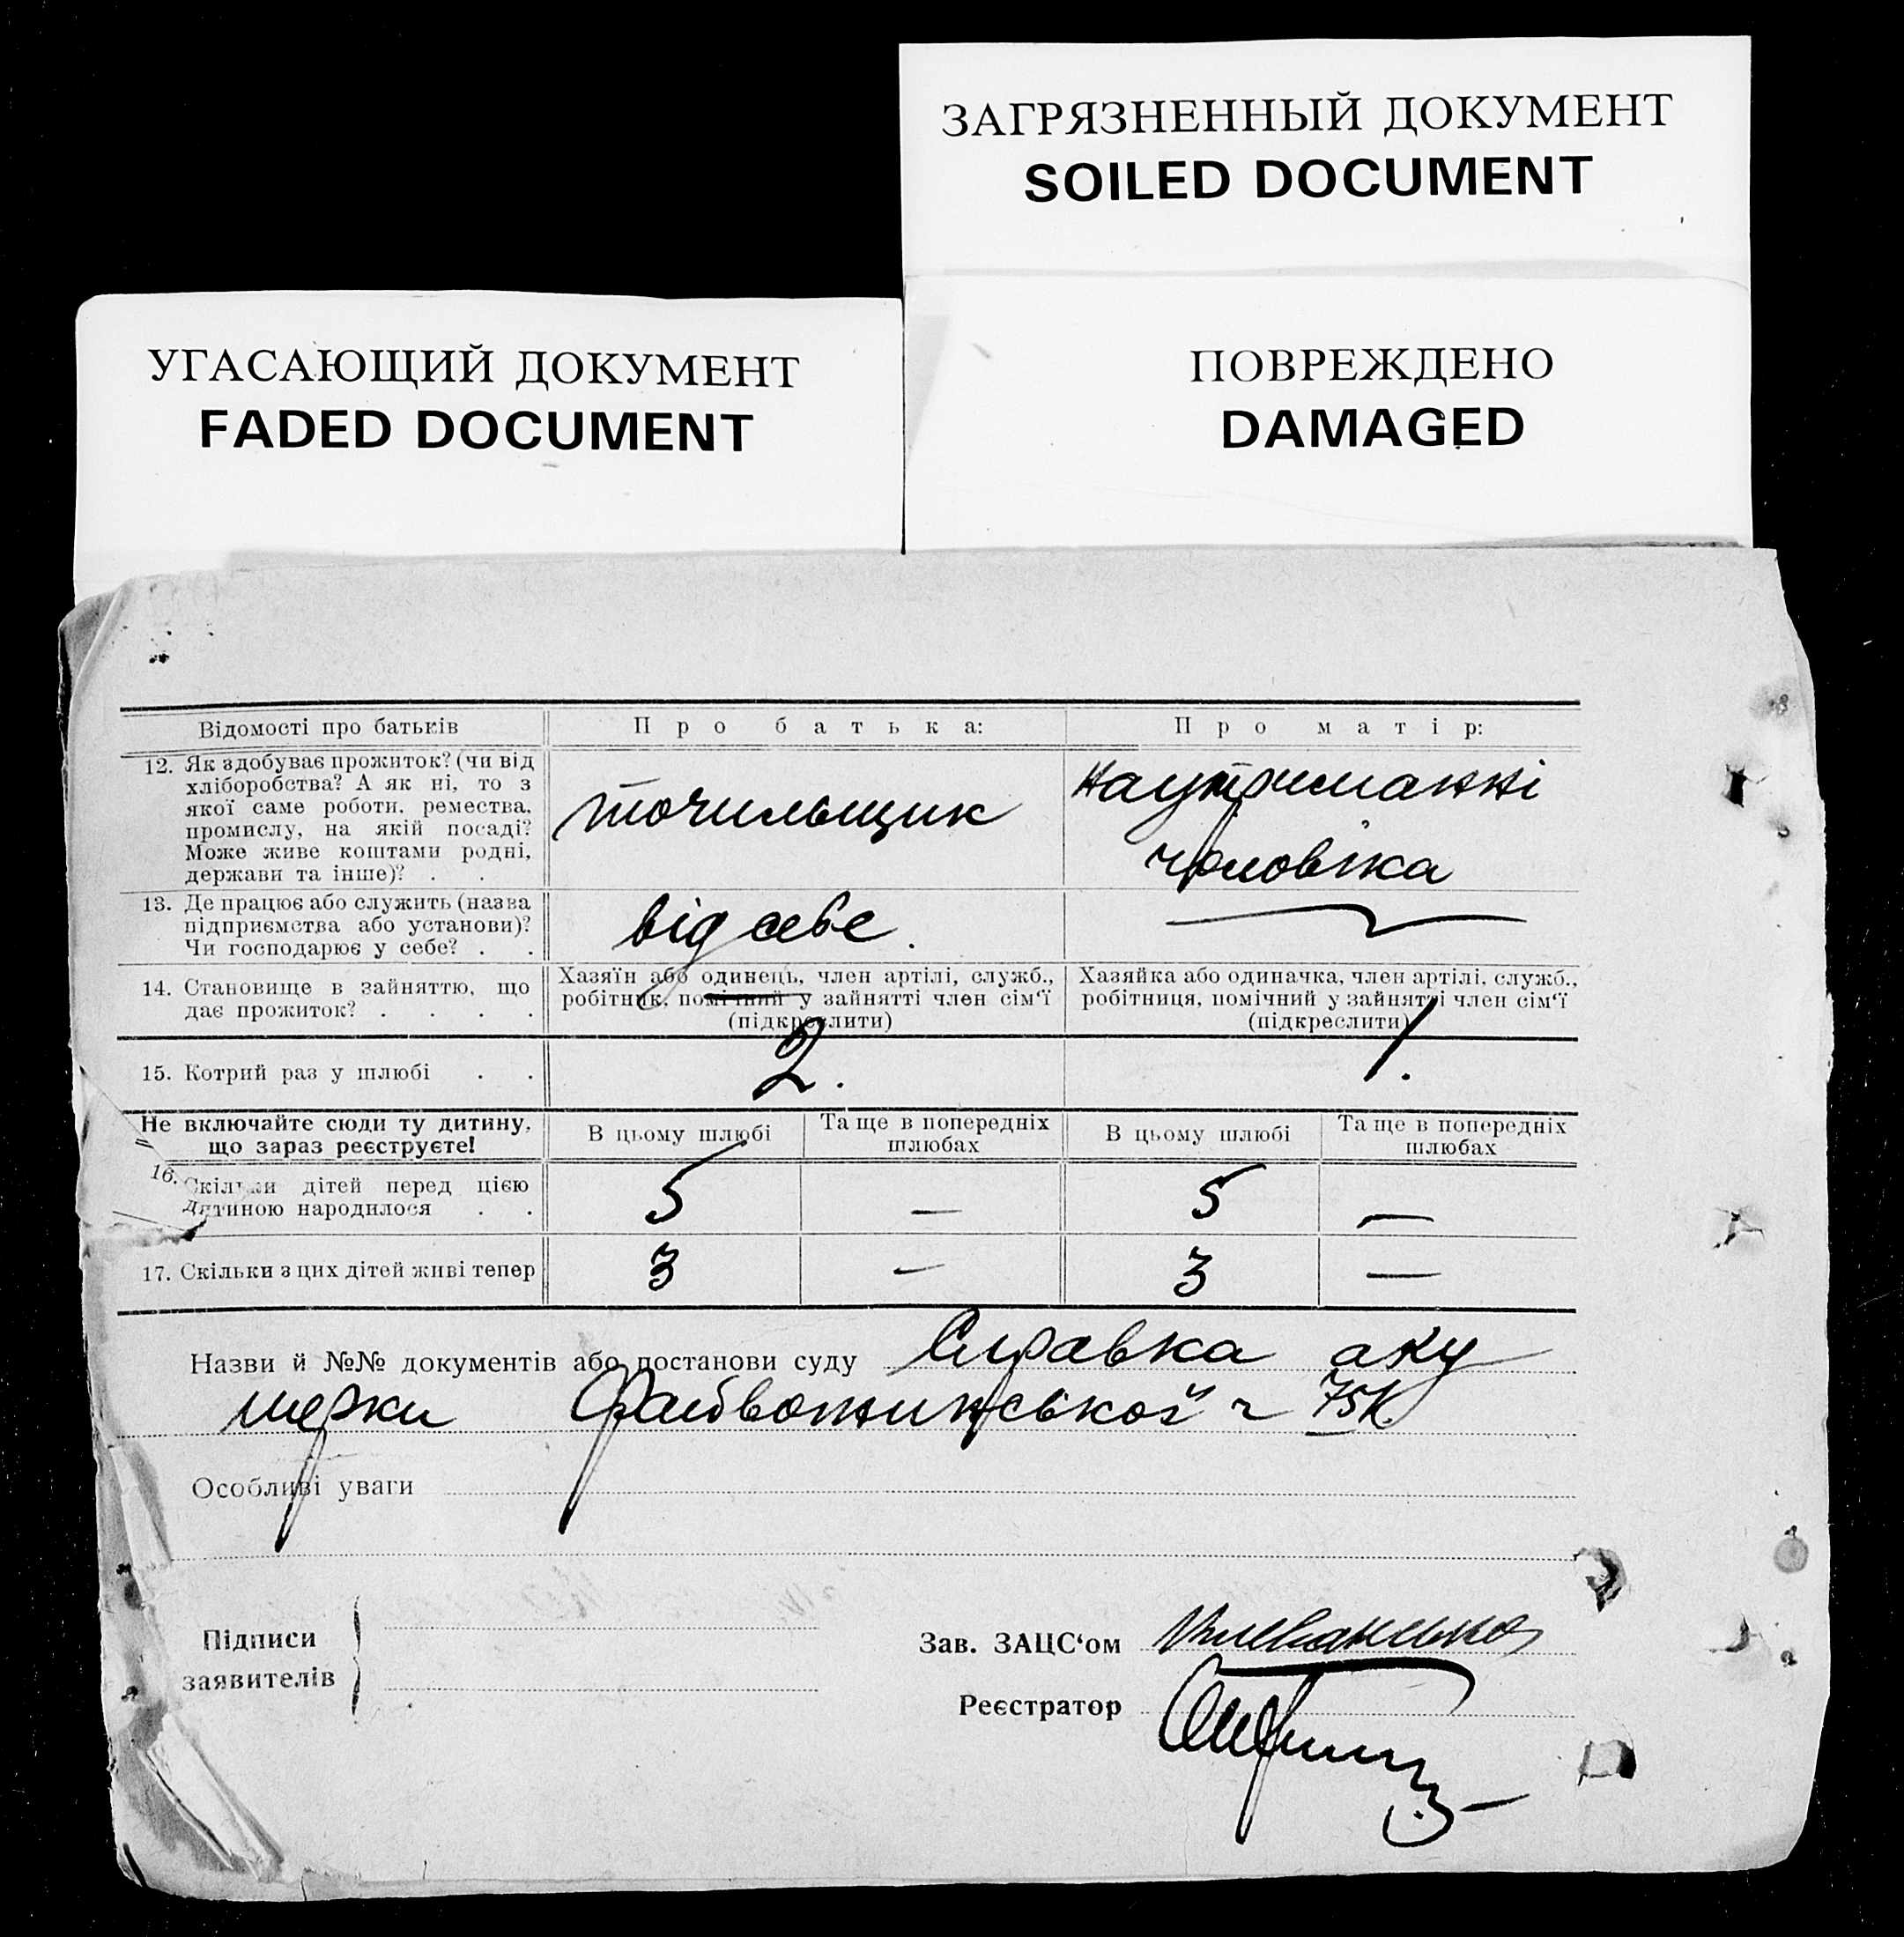 ЗАГРЯЗНЕННЫЙ ДОКУМЕНТ
SOILED DOCUMENT
УГАСАЮЩИЙ ДОКУМЕНТ
FADED DOCUMENT
ПОВРЕЖДЕНО
DAMAGED
Відомості про батьків
Про батька:
Про матір:
12. Як здобуває прожиток? (чи від
хліборобства? А як ні, то з
якої саме роботи, ремества,
промислу, на якій посаді?
Може живе коштами родні,
держави та інше)? . .
точильщик
на утриманні
чоловіка
13. Де працює або служить (назва
підприємства або установи)?
Чи господарює у себе? . .
від себе.
14. Становище в зайняттю, що
дає прожиток? . . . .
Хазяїн або одинець, член артілі, служб.,
робітник, помічний у зайнятті член сім'ї
(підкреслити)
Хазяйка або одиначка, член артілі, служб.,
робітниця, помічний у зайнятті член сім'ї
(підкреслити)
15. Котрий раз у шлюбі . .
2.
1.
Не включайте сюди ту дитину,
що зараз реєструєте!
В цьому шлюбі
Та ще в попередніх
шлюбах
В цьому шлюбі
Та ще в попередніх
шлюбах
16. Скільки дітей перед цією
дитиною народилося . .
5
—
5
—
17. Скільки з цих дітей живі тепер
3
—
3
—
Назви й №№ документів або постанови суду Справка аку
шерки
Особливі уваги
Підписи
заявителів
Зав. ЗАЦС'ом
Реєстратор